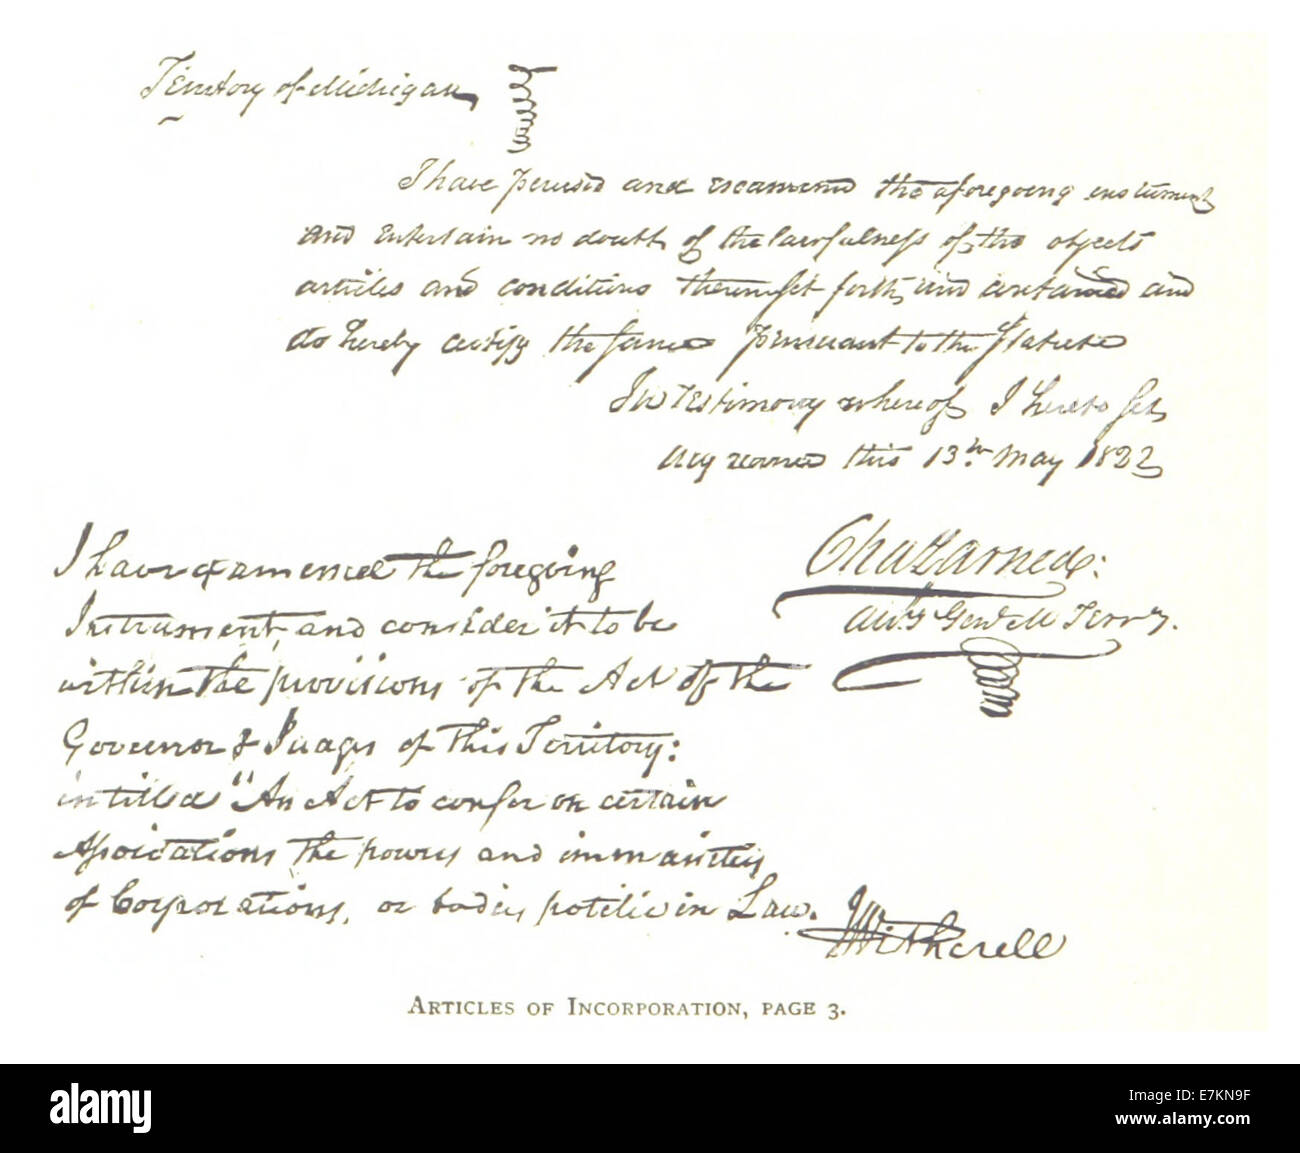 Territory of Michigan
I have perused and examened the aforegoing instrument
and entertain no doubt of the lawfulness of the objects
articles and conditions therein set forth and contained and
do hereby certify the same pursuant to the Statute
In testimony whereof I hereto set
my name this 13th May 1822
Cha Larned
Atty Genl M Terry.
I have examened the foregoing
Instrument, and consider it to be
within the provisions of the Act of the
Governor & Judges of this Territory:
intitled "An Act to confer on certain
Associations the powers and immunities
of Corporations, or bodies politic in Law.
J Witherell
ARTICLES OF INCORPORATION, PAGE 3.
alamy
alamy
Image ID: E7KN9F
www.alamy.com